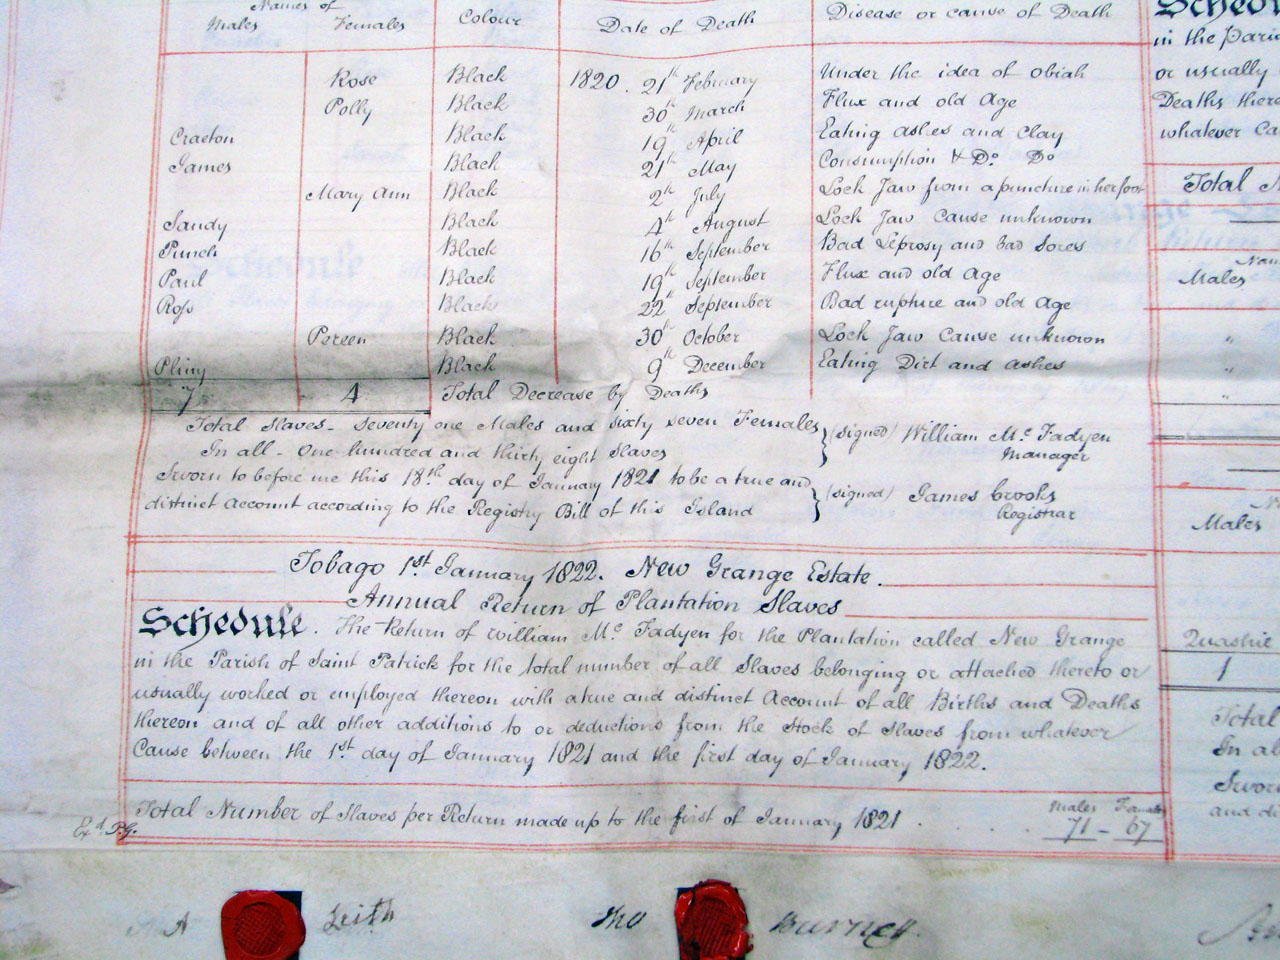 Names of
Males Females Colour Date of Death Disease or cause of Death
Rose Black 1820. 21st February Under the idea of obiah
Polly Black 30th March Flux and old Age
Black 19th April Eating ashes and Clay
James Black 21st May Consumption & Do. Do
Mary Ann Black 2d July Lock Jaw from a puncture in her foot
Sandy Black 4th August Lock Jaw Cause unknown
Punch Black 16th September Bad Leprosy and bad Sores
Paul Black 19th September Flux and old Age
Ross Black 22d September Bad rupture and old Age
Black 30th October Lock Jaw Cause unknown
Pliny Black 9th December Eating Dirt and ashes
7 4 Total Decrease by Deaths
Total Slaves - Seventy one Males and sixty seven Females
In all - One hundred and thirty eight Slaves
(signed) William Mc. Fadyen
Manager
Sworn to before me this 18th. day of January 1821 to be a true and
distinct Account according to the Registry Bill of this Island
(signed) James Crooks
Registrar
Tobago 1st. January 1822. New Grange Estate.
Annual Return of Plantation Slaves
Schedule. The Return of William Mc. Fadyen for the Plantation called New Grange
in the Parish of Saint Patrick for the total number of all Slaves belonging or attached thereto or
usually worked or employed thereon with a true and distinct Account of all Births and Deaths
thereon and of all other additions to or deductions from the Stock of Slaves from whatever
Cause between the 1st. day of January 1821 and the first day of January 1822.
Total Number of Slaves per Return made up to the first of January 1821 . . . . . Males Females
71 - 67
Exd. P.G.
A Leith
Tho Burney
Schedu
in the Paris
or usually
Deaths there
whatever Ca
Total N
Nam
Males
"
"
N
Males
Quashie
1
Total
In al
Swor
and d